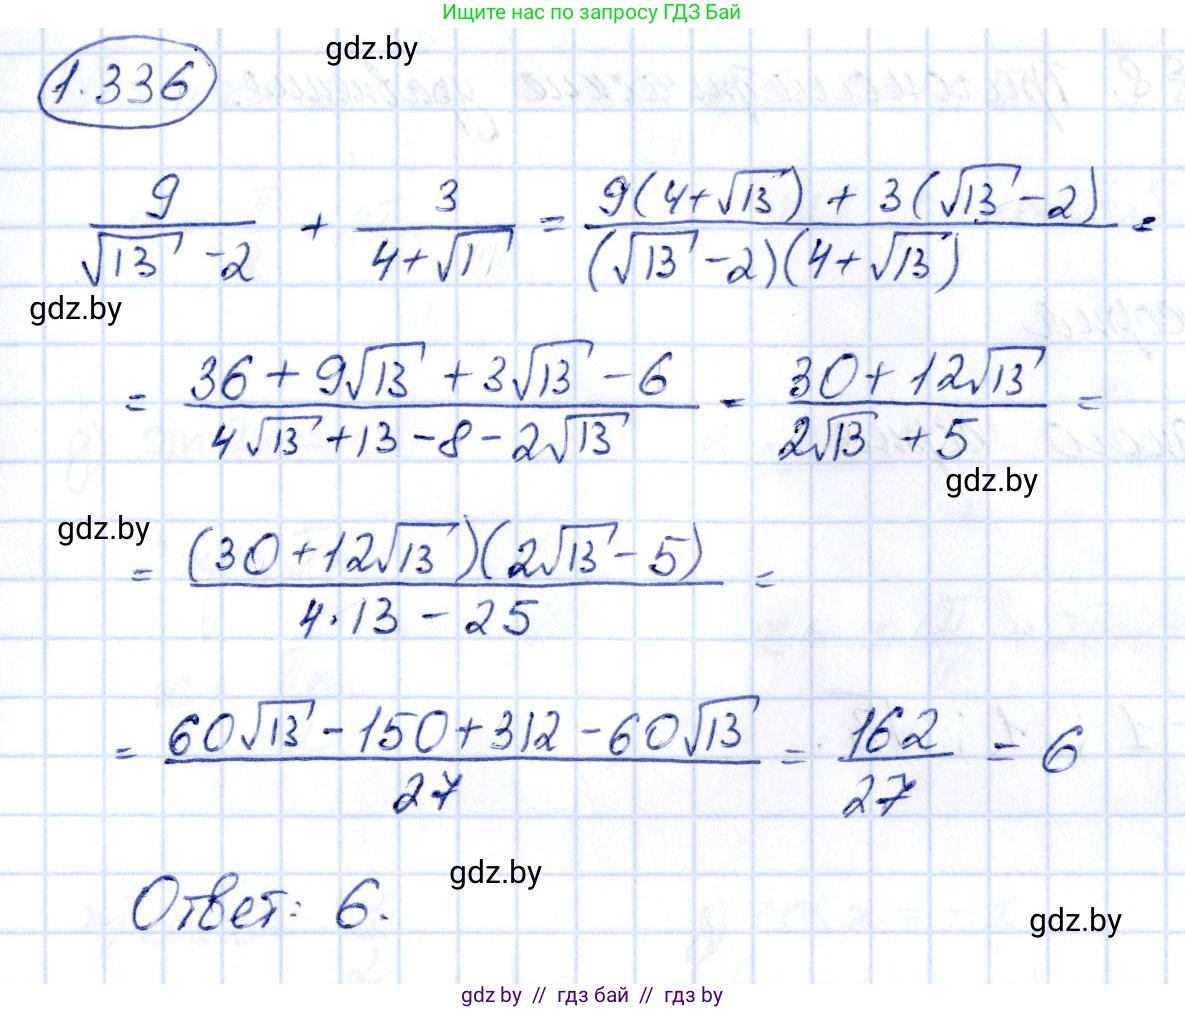 Ищите нас по запросу ГДЗ Бай
gdz.by
1.336
9/(√13 - 2) + 3/(4+√1) = (9(4+√13) + 3(√13 - 2))/((√13 - 2)(4+√13)) =
gdz.by
= (36 + 9√13 + 3√13 - 6)/(4√13 + 13 - 8 - 2√13) = (30 + 12√13)/(2√13 + 5) =
gdz.by
gdz.by
= ((30 + 12√13)(2√13 - 5))/(4·13 - 25) =
= (60√13 - 150 + 312 - 60√13)/27 = 162/27 = 6
gdz.by
Ответ: 6.
gdz.by
gdz by // гдз бай // гдз by